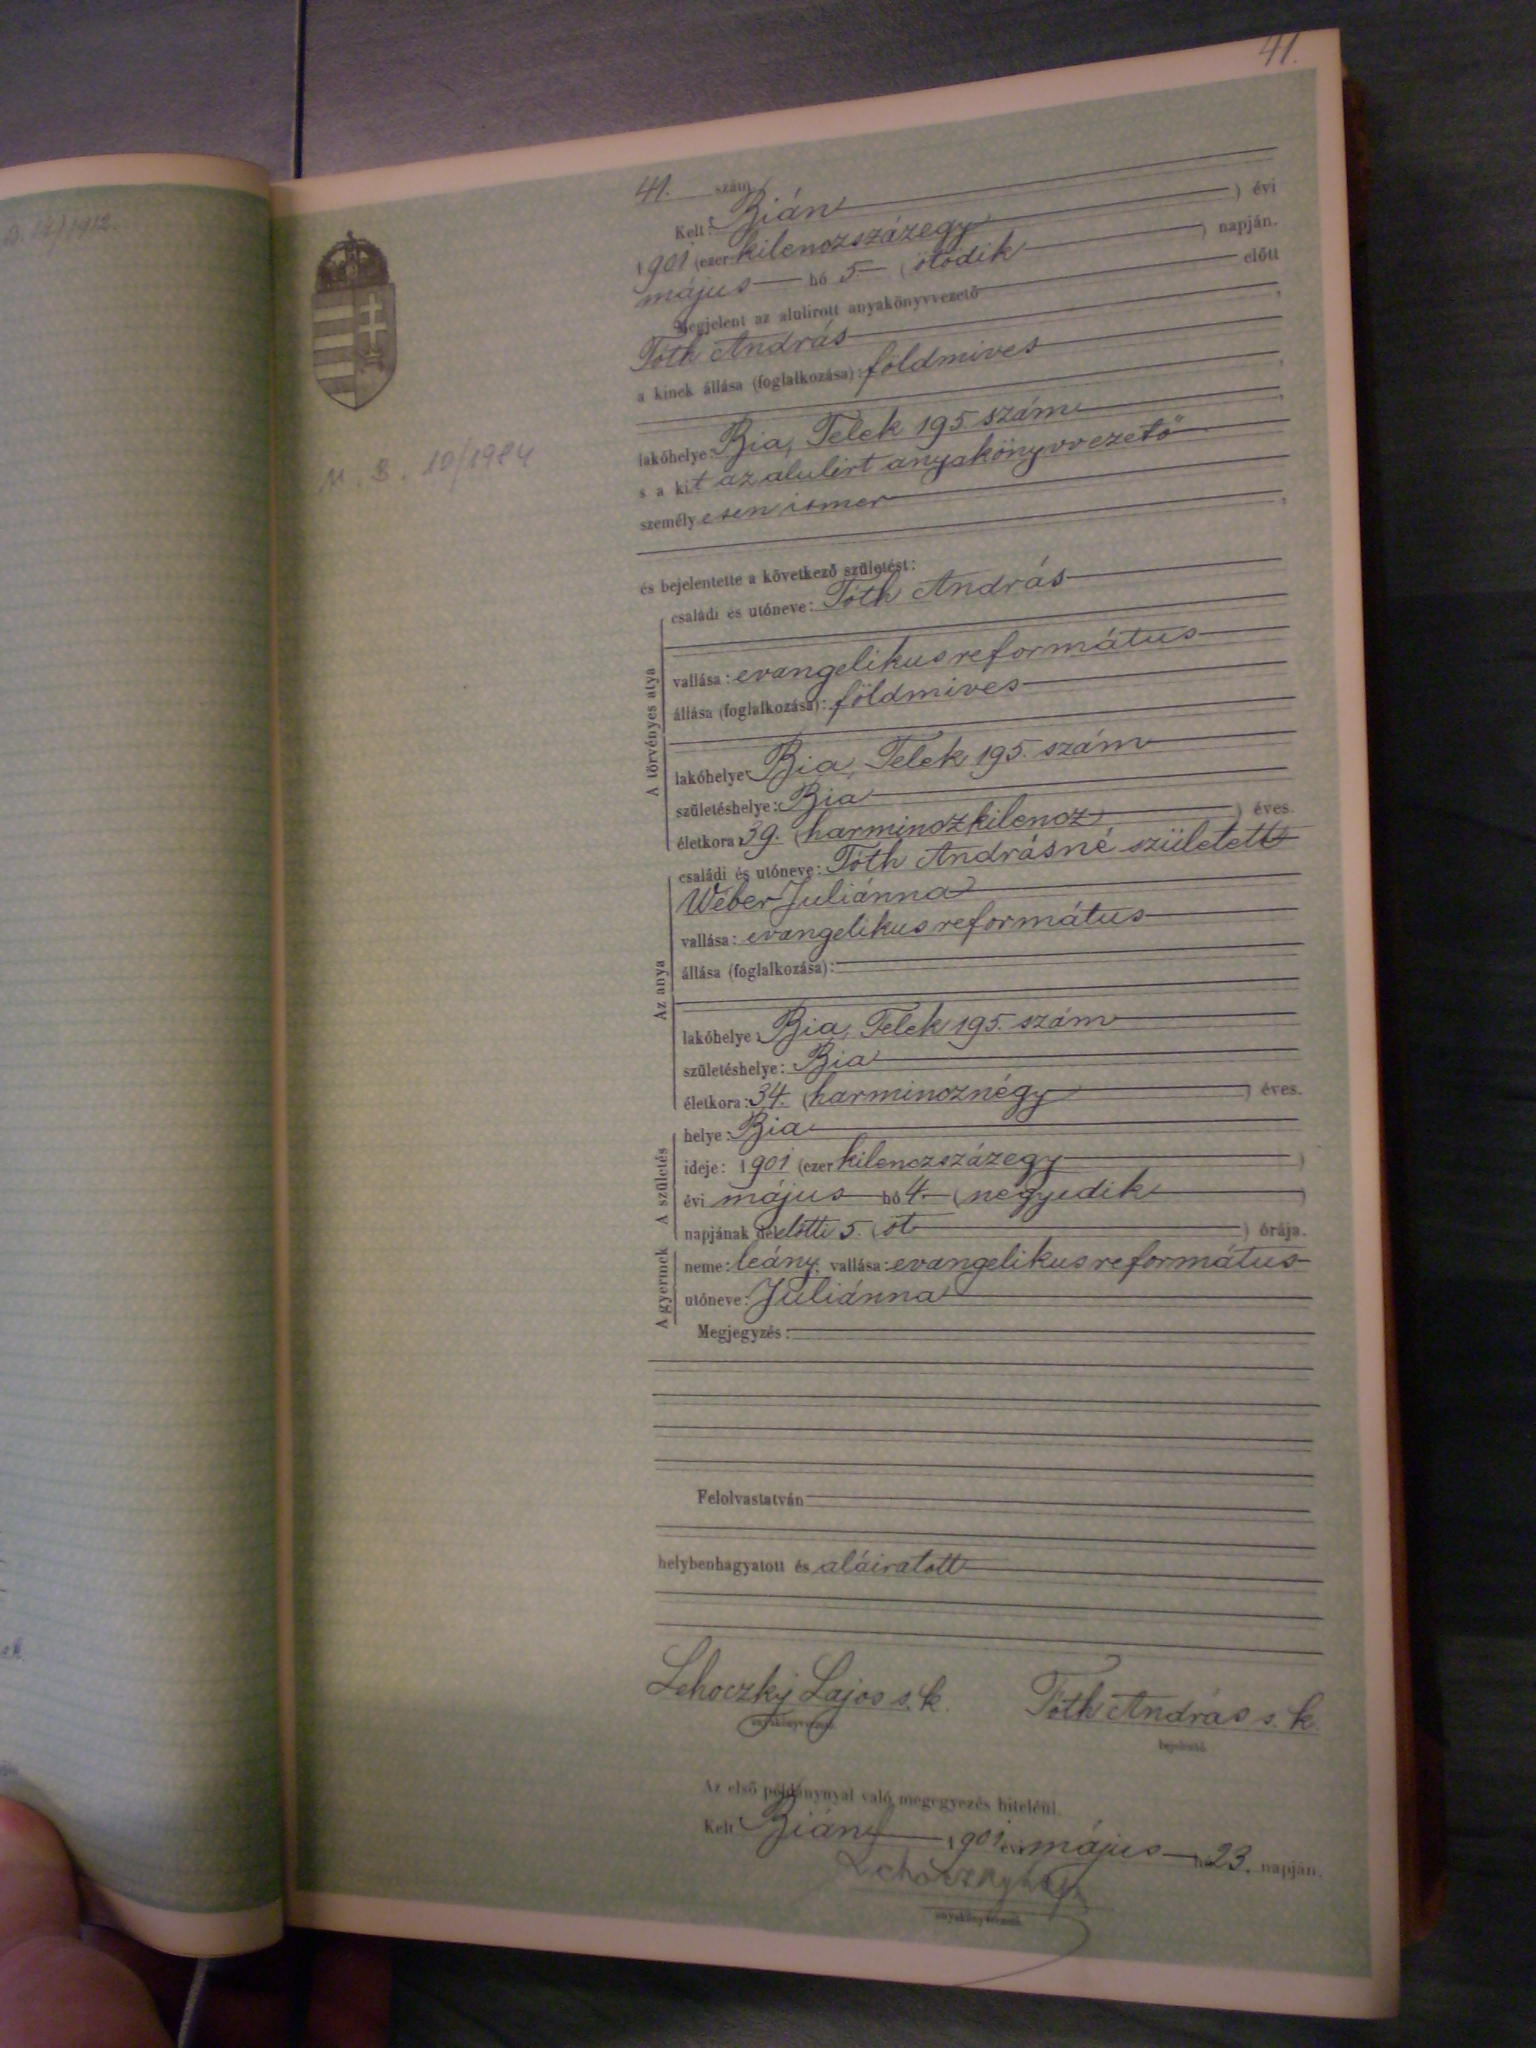 41.
B. 14/1912.
41. szám
Kelt: Bián ) évi
1901 (ezer kilenczszázegy ) napján.
május hó 5. (ötödik
Megjelent az alulirott anyakönyvvezető előtt
Tóth András
a kinek állása (foglalkozása): földmives
lakóhelye: Bia, Telek 195. szám
s a kit az alulirt anyakönyvvezető
személyesen ismer
M. B. 10/1984
és bejelentette a következő születést:
A törvényes atya
családi és utóneve: Tóth András
vallása: evangelikus református
állása (foglalkozása): földmives
lakóhelye: Bia, Telek 195. szám
születéshelye: Bia
életkora: 39. (harminczkilencz ) éves.
Az anya
családi és utóneve: Tóth Andrásné született
Wéber Juliánna
vallása: evangelikus református
állása (foglalkozása):
lakóhelye: Bia, Telek 195. szám
születéshelye: Bia
életkora: 34. (harmincznégy ) éves.
A születés
helye: Bia
ideje: 1901 (ezer kilenczszázegy )
évi május hó 4. (negyedik )
napjának délelőtti 5. (öt ) órája.
A gyermek
neme: leány, vallása: evangelikus református
utóneve: Juliánna
Megjegyzés:
Felolvastatván
helybenhagyatott és aláiratott
Lehoczky Lajos s. k. Tóth András s. k.
anyakönyvvezető bejelentő
Az első példánynyal való megegyezés hiteléül.
Kelt Bián 1901 évi május hó 23. napján.
Lehoczky Lajos
anyakönyvvezető